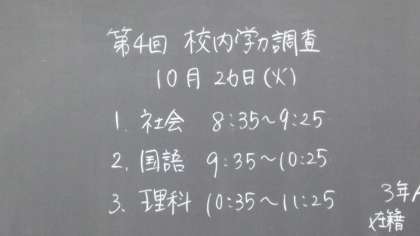 第4回 校内学力調査
10月 26日(火)
1. 社会 8:35〜9:25
2. 国語 9:35〜10:25
3. 理科 10:35〜11:25
3年A
在籍